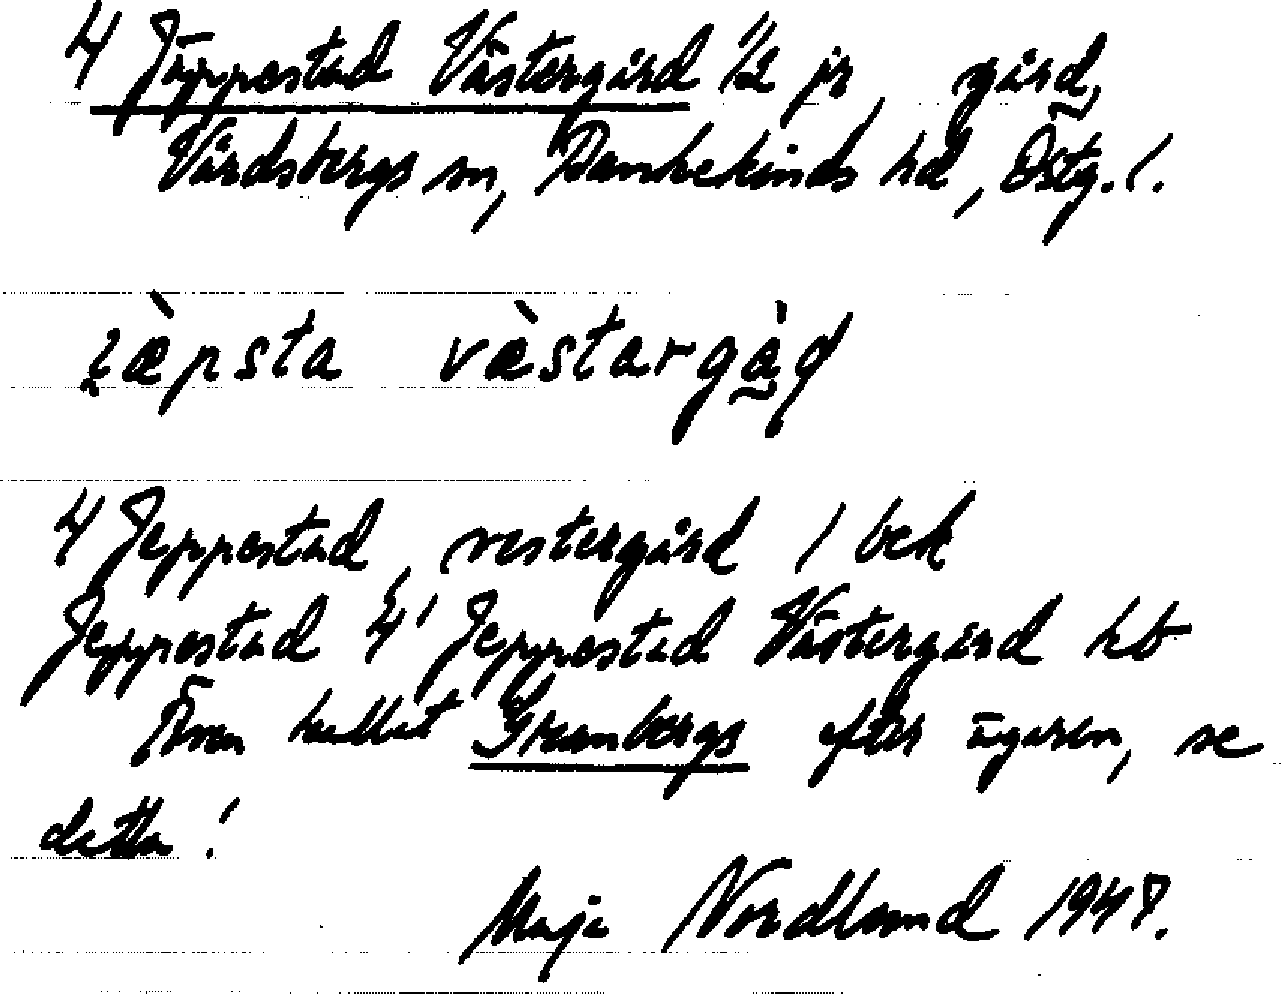 4 Jäppestad Västergård 1/2 jr, gård,
Vårdsbergs sn, Bankekinds hd, Östg. l.
væ̀stargàɖ
4 Jeppestad, vestergård 1 bek
Jeppestad 4¹ Jeppestad Västergård hb
Även kallat Granbergs efter ägaren, se
detta!
Maja Nordlund 1947.